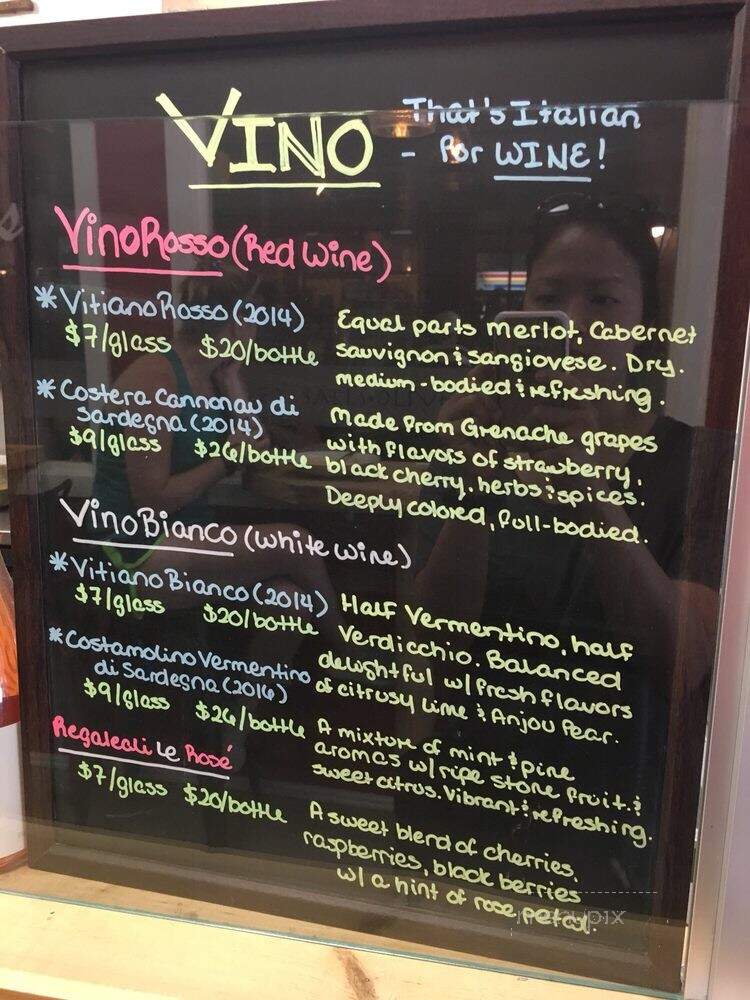 VINO
That's Italian
- for WINE!
Vino Rosso (Red Wine)
* Vitiano Rosso (2014)
$7/glass $20/bottle
Equal parts merlot, Cabernet
sauvignon & sangiovese. Dry.
medium-bodied & refreshing.
* Costera Cannonau di
Sardegna (2014)
$9/glass $26/bottle
Made from Grenache grapes
with flavors of strawberry,
black cherry, herbs & spices.
Deeply colored, full-bodied.
Vino Bianco (white wine)
* Vitiano Bianco (2014)
$7/glass $20/bottle
Half Vermentino, half
Verdicchio. Balanced
delightful w/ fresh flavors
of citrusy lime & Anjou Pear.
* Costamolino Vermentino
di Sardegna (2016)
$9/glass $26/bottle
A mixture of mint & pine
aromas w/ ripe stone fruit &
sweet citrus. Vibrant & refreshing.
Regaleali Le Rosé
$7/glass $20/bottle
A sweet blend of cherries,
raspberries, black berries
w/ a hint of rose petal.